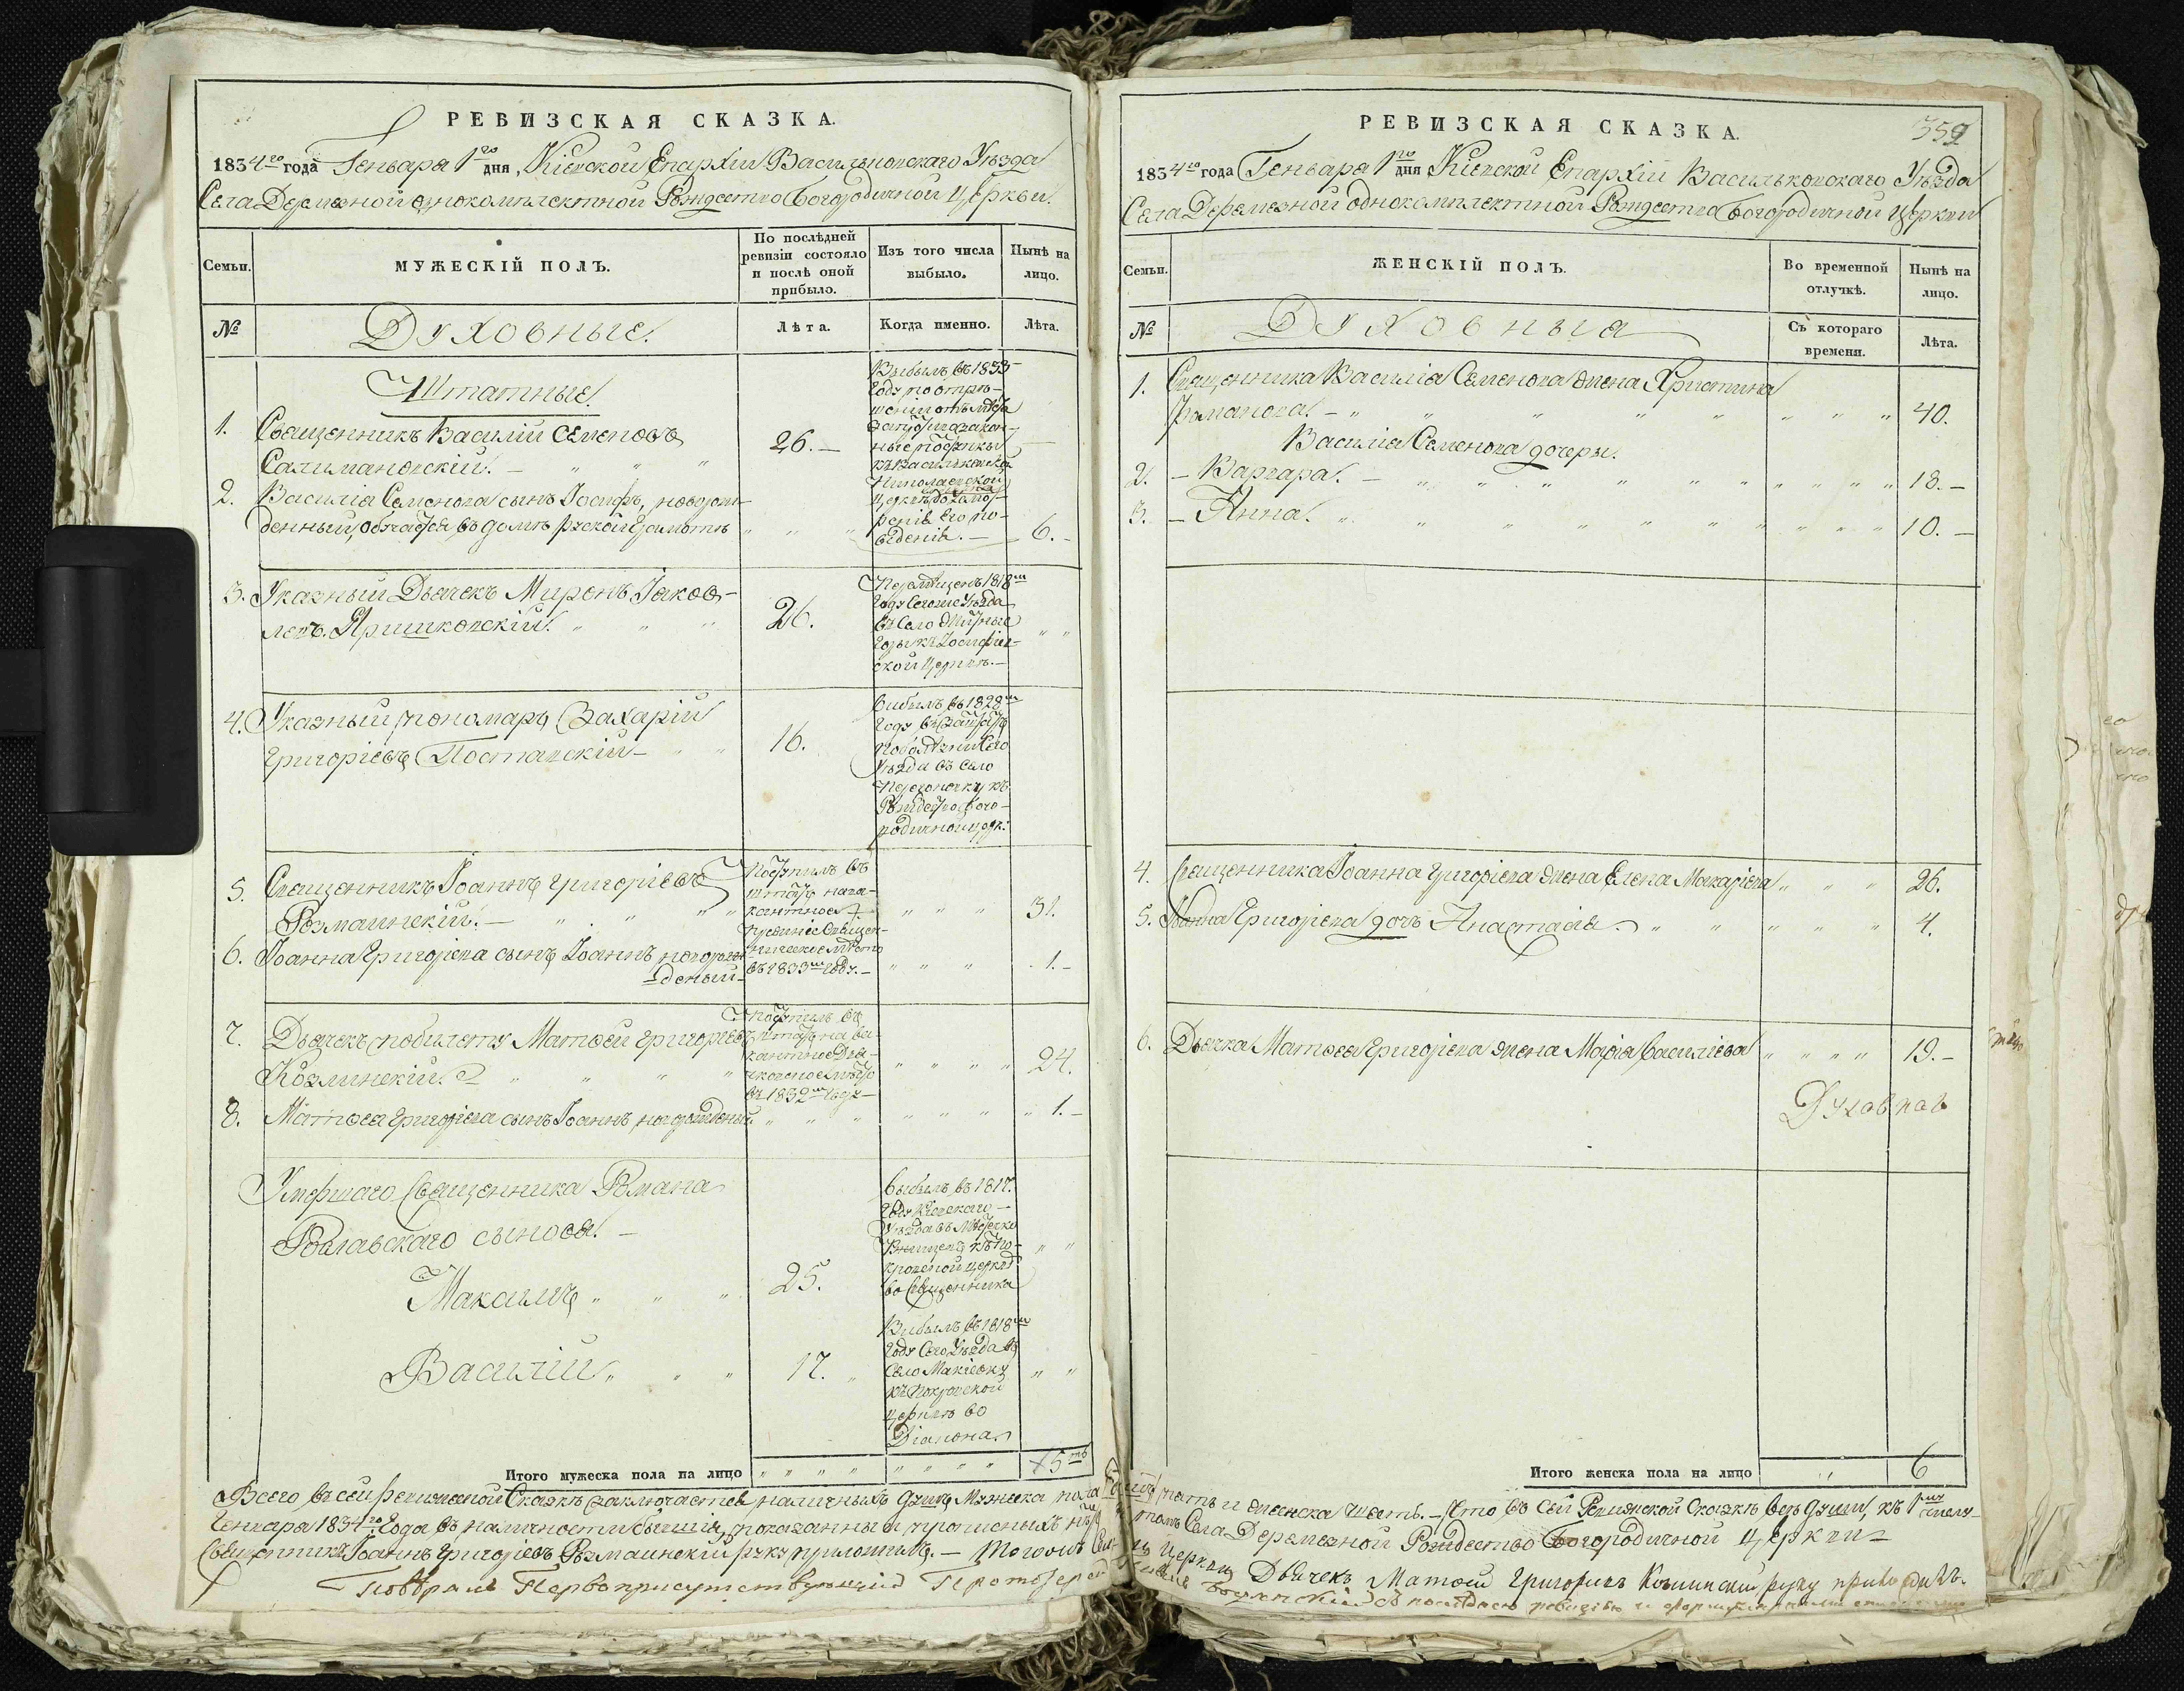 РЕВИЗСКАЯ СКАЗКА.
1834го года Генваря 1го дня, Кіевской Епархіи Васильковскаго Уѣзда
Села Деремезной однокомплектной Рождество Богородичной Церкви.
Семьи.
МУЖЕСКІЙ ПОЛЪ.
По послѣдней ревизіи состояло и послѣ оной прибыло.
Изъ того числа выбыло.
Нынѣ на лицо.
№
Духовные.
Лѣта.
Когда именно.
Лѣта.
Штатные.
1. Священникъ Василій Семеновъ
Салимановскій. 26.
Выбылъ въ 1833
году по отрѣ-
шеніи отъ мѣста
къ Васильковской
Николаевской
2. Василія Семенова сынъ Іосифъ, новорож-
денный, обучается въ домѣ руской грамотѣ 6.
3. Указный Дьячекъ Миронъ Іаков-
левъ Яришковскій. 26.
Перемѣщенъ 1818м
году сегоже уѣзда
въ село Жидовые
ской церквѣ.
4. Указный пономарь Захарій
Григоріевъ Поставскій 16.
выбылъ въ 1828м
году
уѣзда въ село
Рождество Бого-
родичной церк:
5. Священникъ Іоаннъ Григоріевъ
Розмаинскій. 31.
Поступилъ въ
штатъ на ва-
кантное
Священ-
ническое мѣсто
въ 1833м году.
6. Іоанна Григоріева сынъ Іоаннъ новорож-
деный 1.
7. Дьячекъ по билету Матѳей Григоріевъ
Козлинскій. 24.
Поступилъ въ
штатъ на ва-
кантное Дья-
чковское мѣсто
въ 1832м году
8. Матѳея Григоріева сынъ Іоаннъ, новорожденый. 1.
Умершаго Священника Романа
Рославскаго сыновя.
Максимъ 25.
выбылъ въ 1817.
году Кіевскаго
уѣзда въ мѣстечко
кровской церквѣ
во Священника
Василій 17.
Выбылъ въ 1818м
году Сего Уѣзда въ
Село Макіевку
къ Покровской
церквѣ во
Діакона.
Итого мужеска пола на лицо 5ть
РЕВИЗСКАЯ СКАЗКА.
359
1834го года Генваря 1го дня Кіевской Епархіи Васильковскаго Уѣзда
Села Деремезной однокомплектной Рождество Богородичной Церкви
Семьи.
ЖЕНСКІЙ ПОЛЪ.
Во временной отлучкѣ.
Нынѣ на лицо.
№
Духовныя
Съ котораго времени.
Лѣта.
1. Священника Василія Семенова жена Христина
Романова. 40.
Василія Семенова дочеры.
2. Варвара. 18.
3. Анна. 10.
4. Священника Іоанна Григоріева жена Елена Макаріева 26.
5. Іоанна Григоріева дочь Анастасія. 4.
6. Дьячка Матѳея Григоріева жена Марія Василіева 19.
Духовнаг
Итого женска пола на лицо 6
Всего въ сей Ревизской Сказкѣ заключается наличныхъ душъ Мужеска пола пять и женска шесть. Что въ сей Ревизской Сказкѣ всѣ души, къ 1му числу
Генваря 1834го Года въ наличности бывшія, показанны и прописныхъ нѣтъ, въ томъ Села Деремезной Рождество Богородичной Церкви
Священникъ Іоаннъ Григоріевъ Розмаинскій руку приложилъ. Тогожъ Села Церкви Дьячекъ Матѳей Григориевъ Козлинский руку приложилъ.
Повѣрялъ Первоприсутствующій Протоіерей